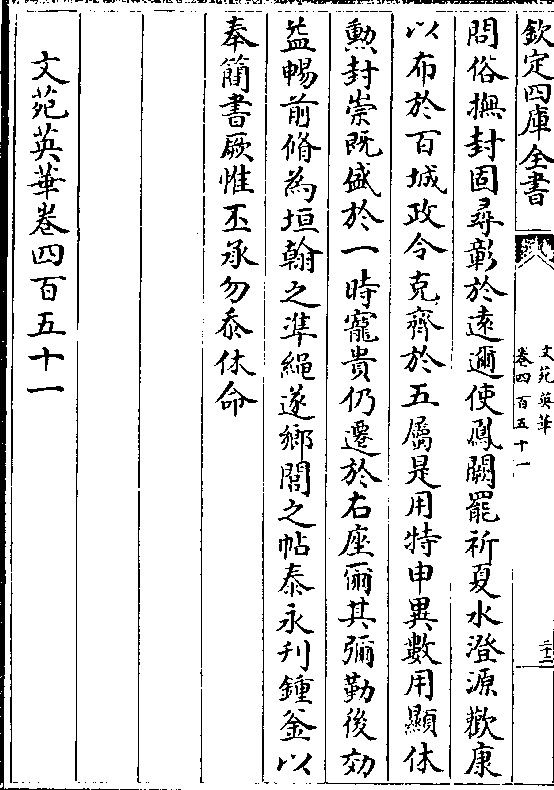 欽定四庫全書
文苑英華
卷四百五十一
二十二
問俗撫封固尋彰於遠邇使鳳闕罷祈夏水澄源歡康
以布於百城政令克齊於五屬是用特申異數用顯休
勲封崇既盛於一時寵貴仍遷於右座爾其彌勤後効
益暢前脩為垣翰之準繩遂鄉閭之帖泰永刋鍾釜以
奉簡書厥惟丕承勿忝休命
文苑英華卷四百五十一